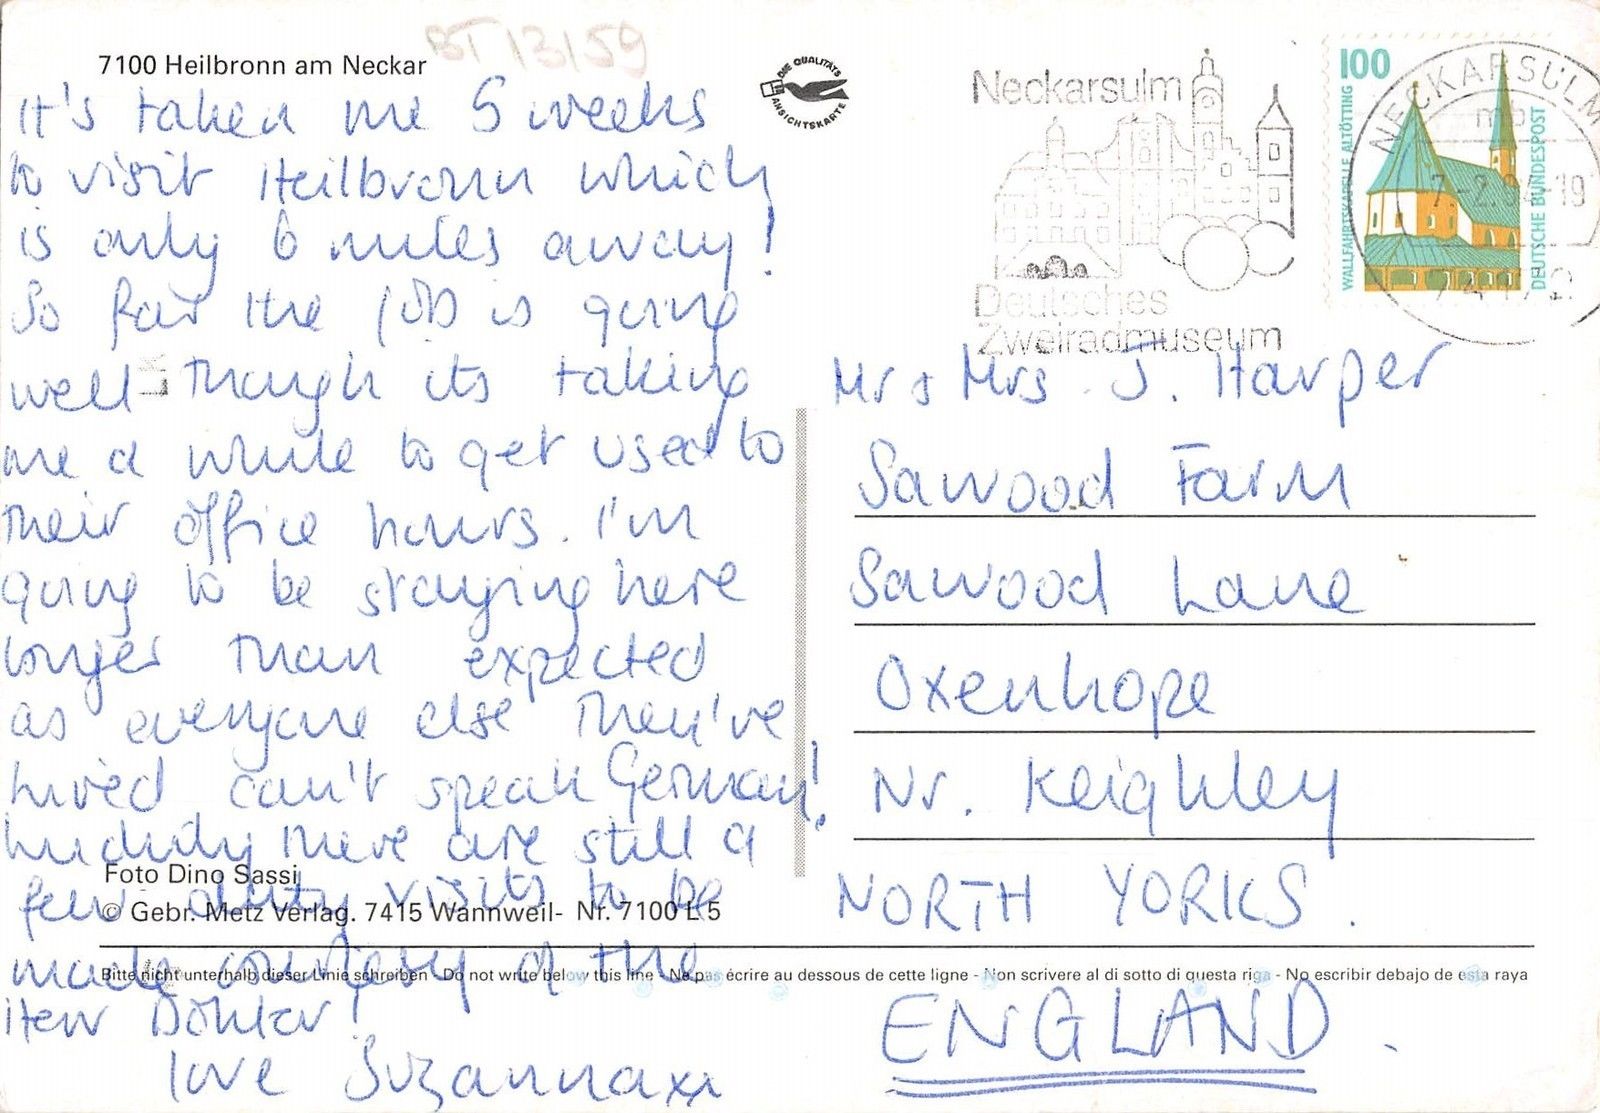 BT 13/59
7100 Heilbronn am Neckar
It's taken me 5 weeks
to visit Heilbronn which
is only 6 miles away!
So far the job is going
well though its taking
me a while to get used to
their office hours. I'm
going to be staying here
longer than expected
as everyone else they've
hired can't speak German!
there are still a
few duty visits to be
made courtesy of the
Herr
love Suzanna xx
Foto Dino Sassi
© Gebr. Metz Verlag. 7415 Wannweil- Nr. 7100 L 5
Bitte nicht unterhalb dieser Linie schreiben - Do not write below this line - Ne pas écrire au dessous de cette ligne - Non scrivere al di sotto di questa riga - No escribir debajo de esta raya
DIE QUALITÄTS
ANSICHTSKARTE
Neckarsulm
Deutsches
Zweiradmuseum
100
WALLFAHRTSKAPELLE ALTÖTTING
DEUTSCHE BUNDESPOST
NECKARSULM
mb
Mr & Mrs. J. Harper
Sawood Farm
Sawood Lane
Oxenhope
Nr. Keighley
NORTH YORKS.
ENGLAND.